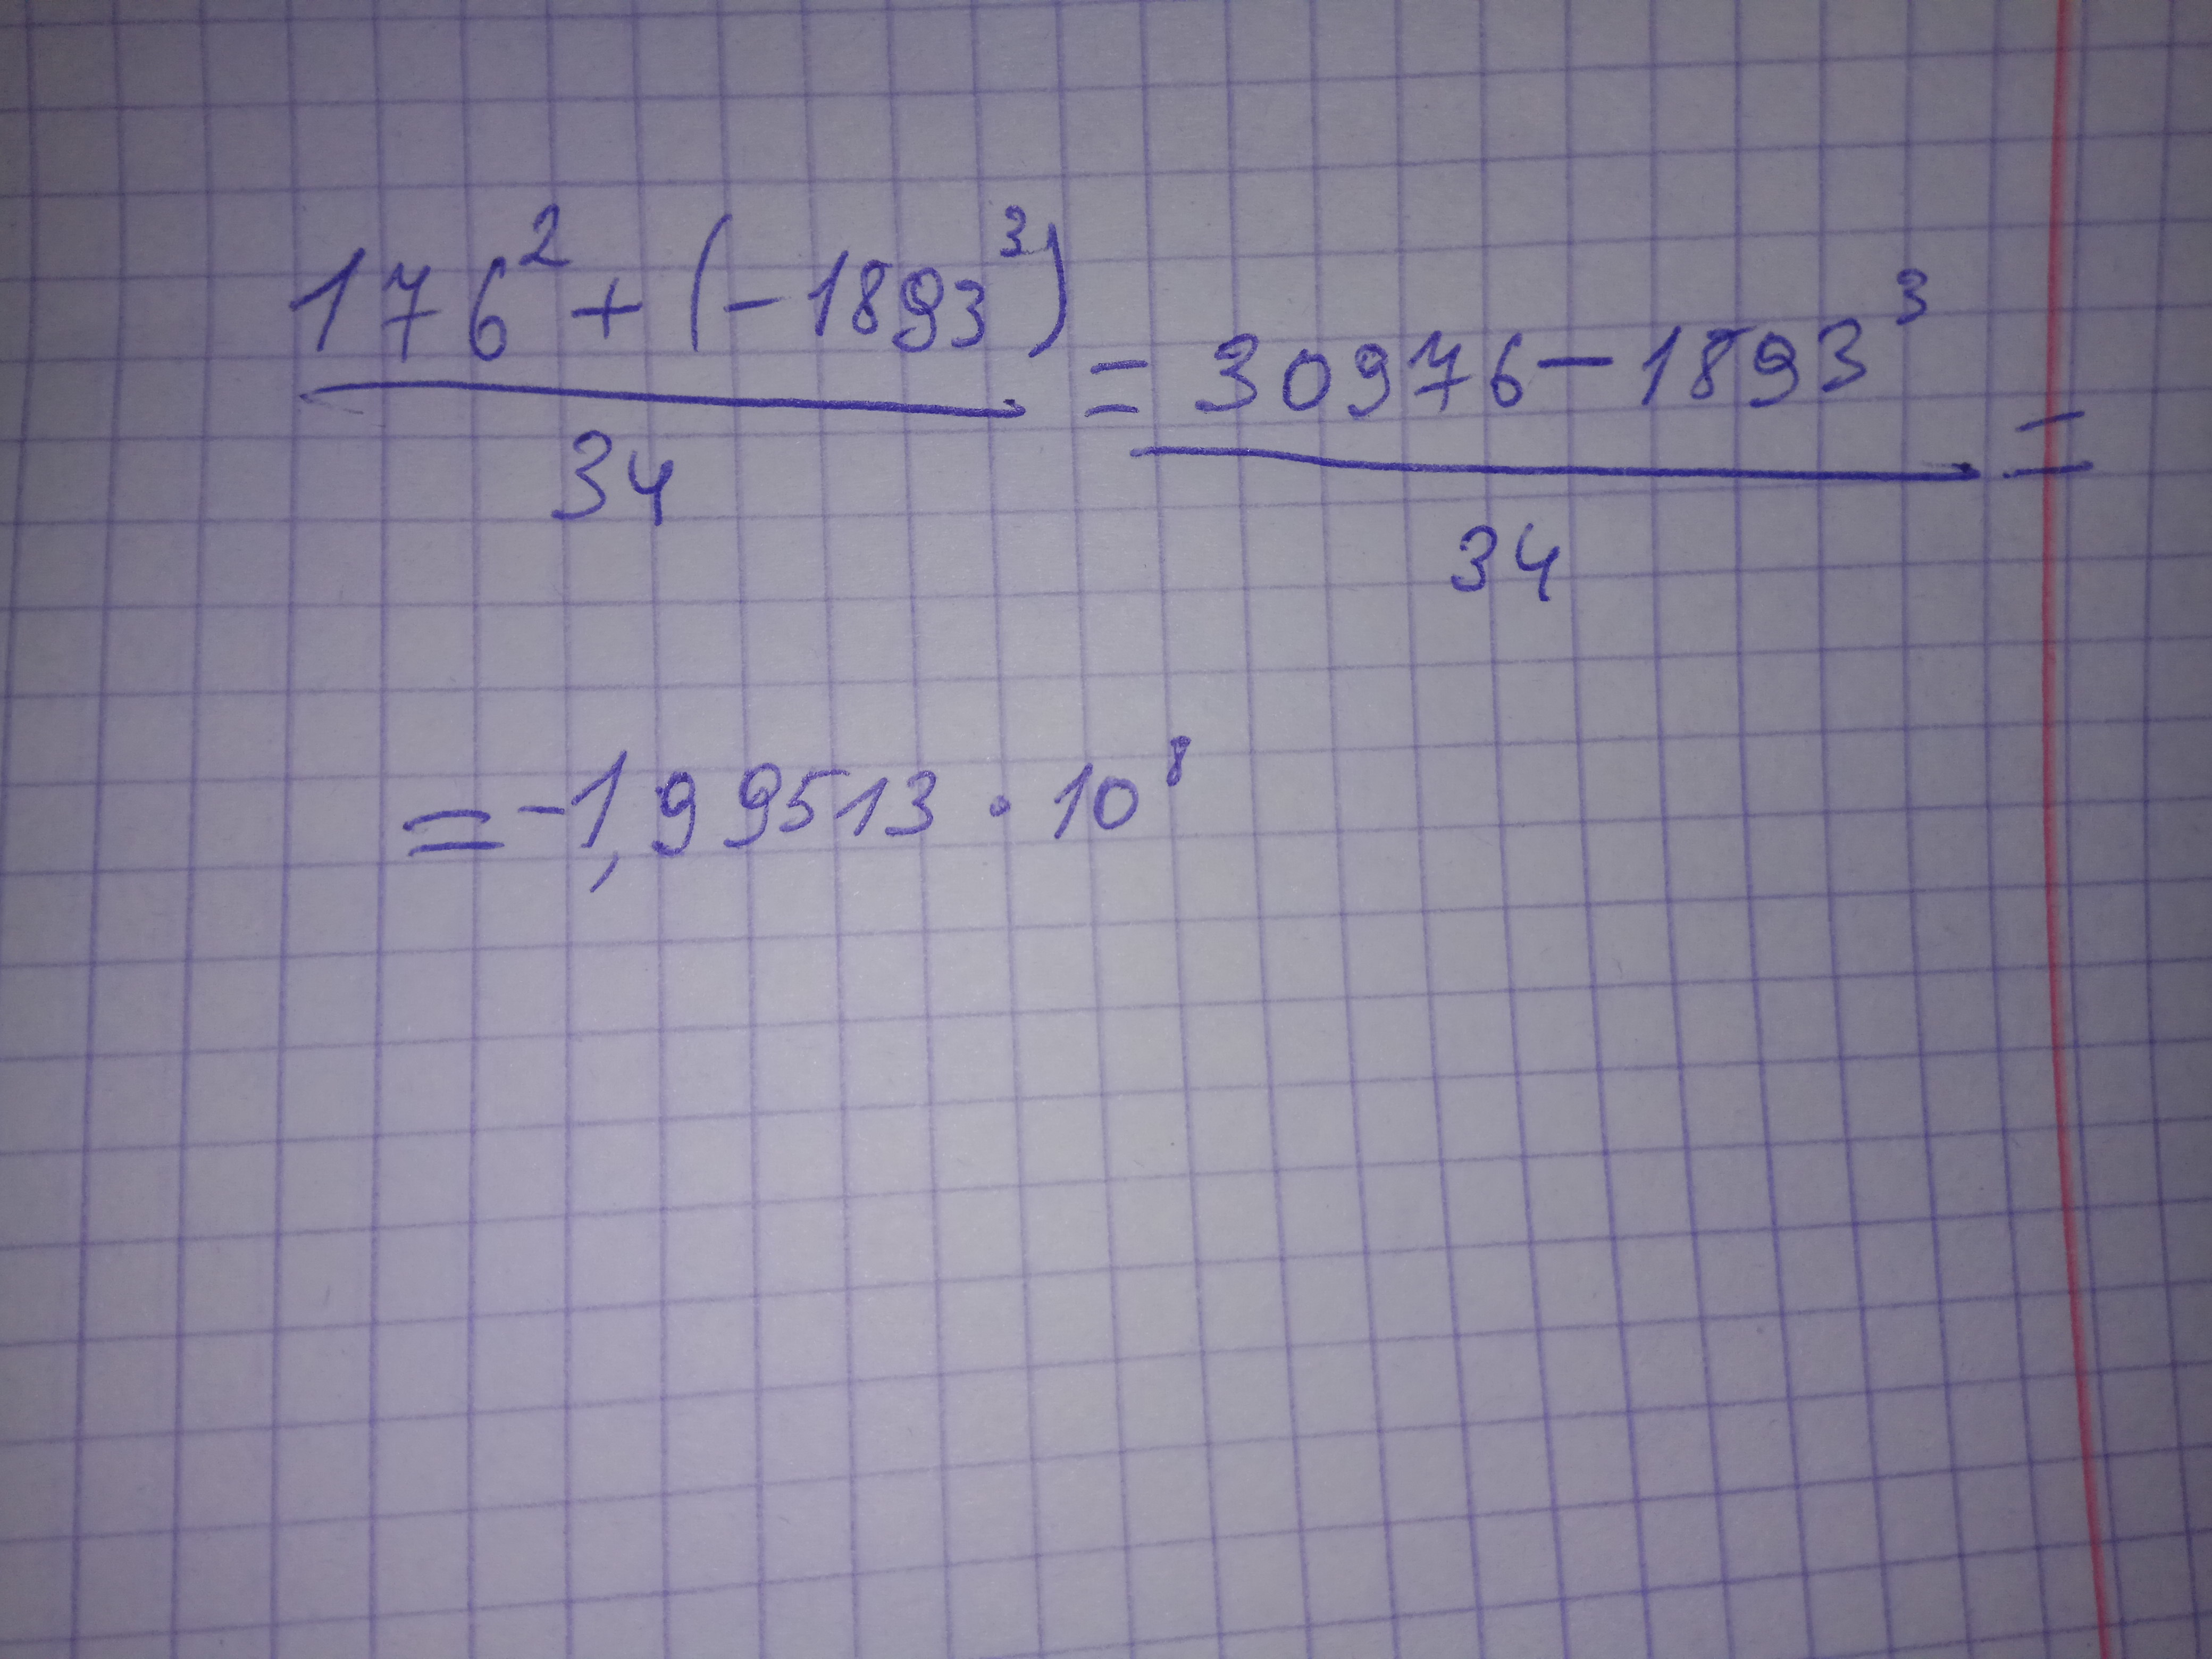 (176² + (-1893³))/34 = (30976 - 1893³)/34 =
= -1,99513 · 10⁸